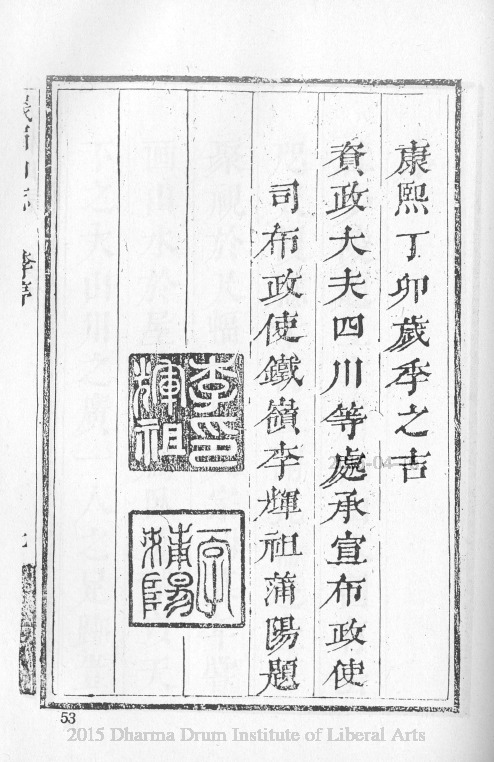 康熙丁卯歲季之吉
資政大夫四川等處承宣布政使
司布政使鐵嶺李輝祖蒲陽題
李印
輝祖
蒲陽
53
2015 Dharma Drum Institute of Liberal Arts